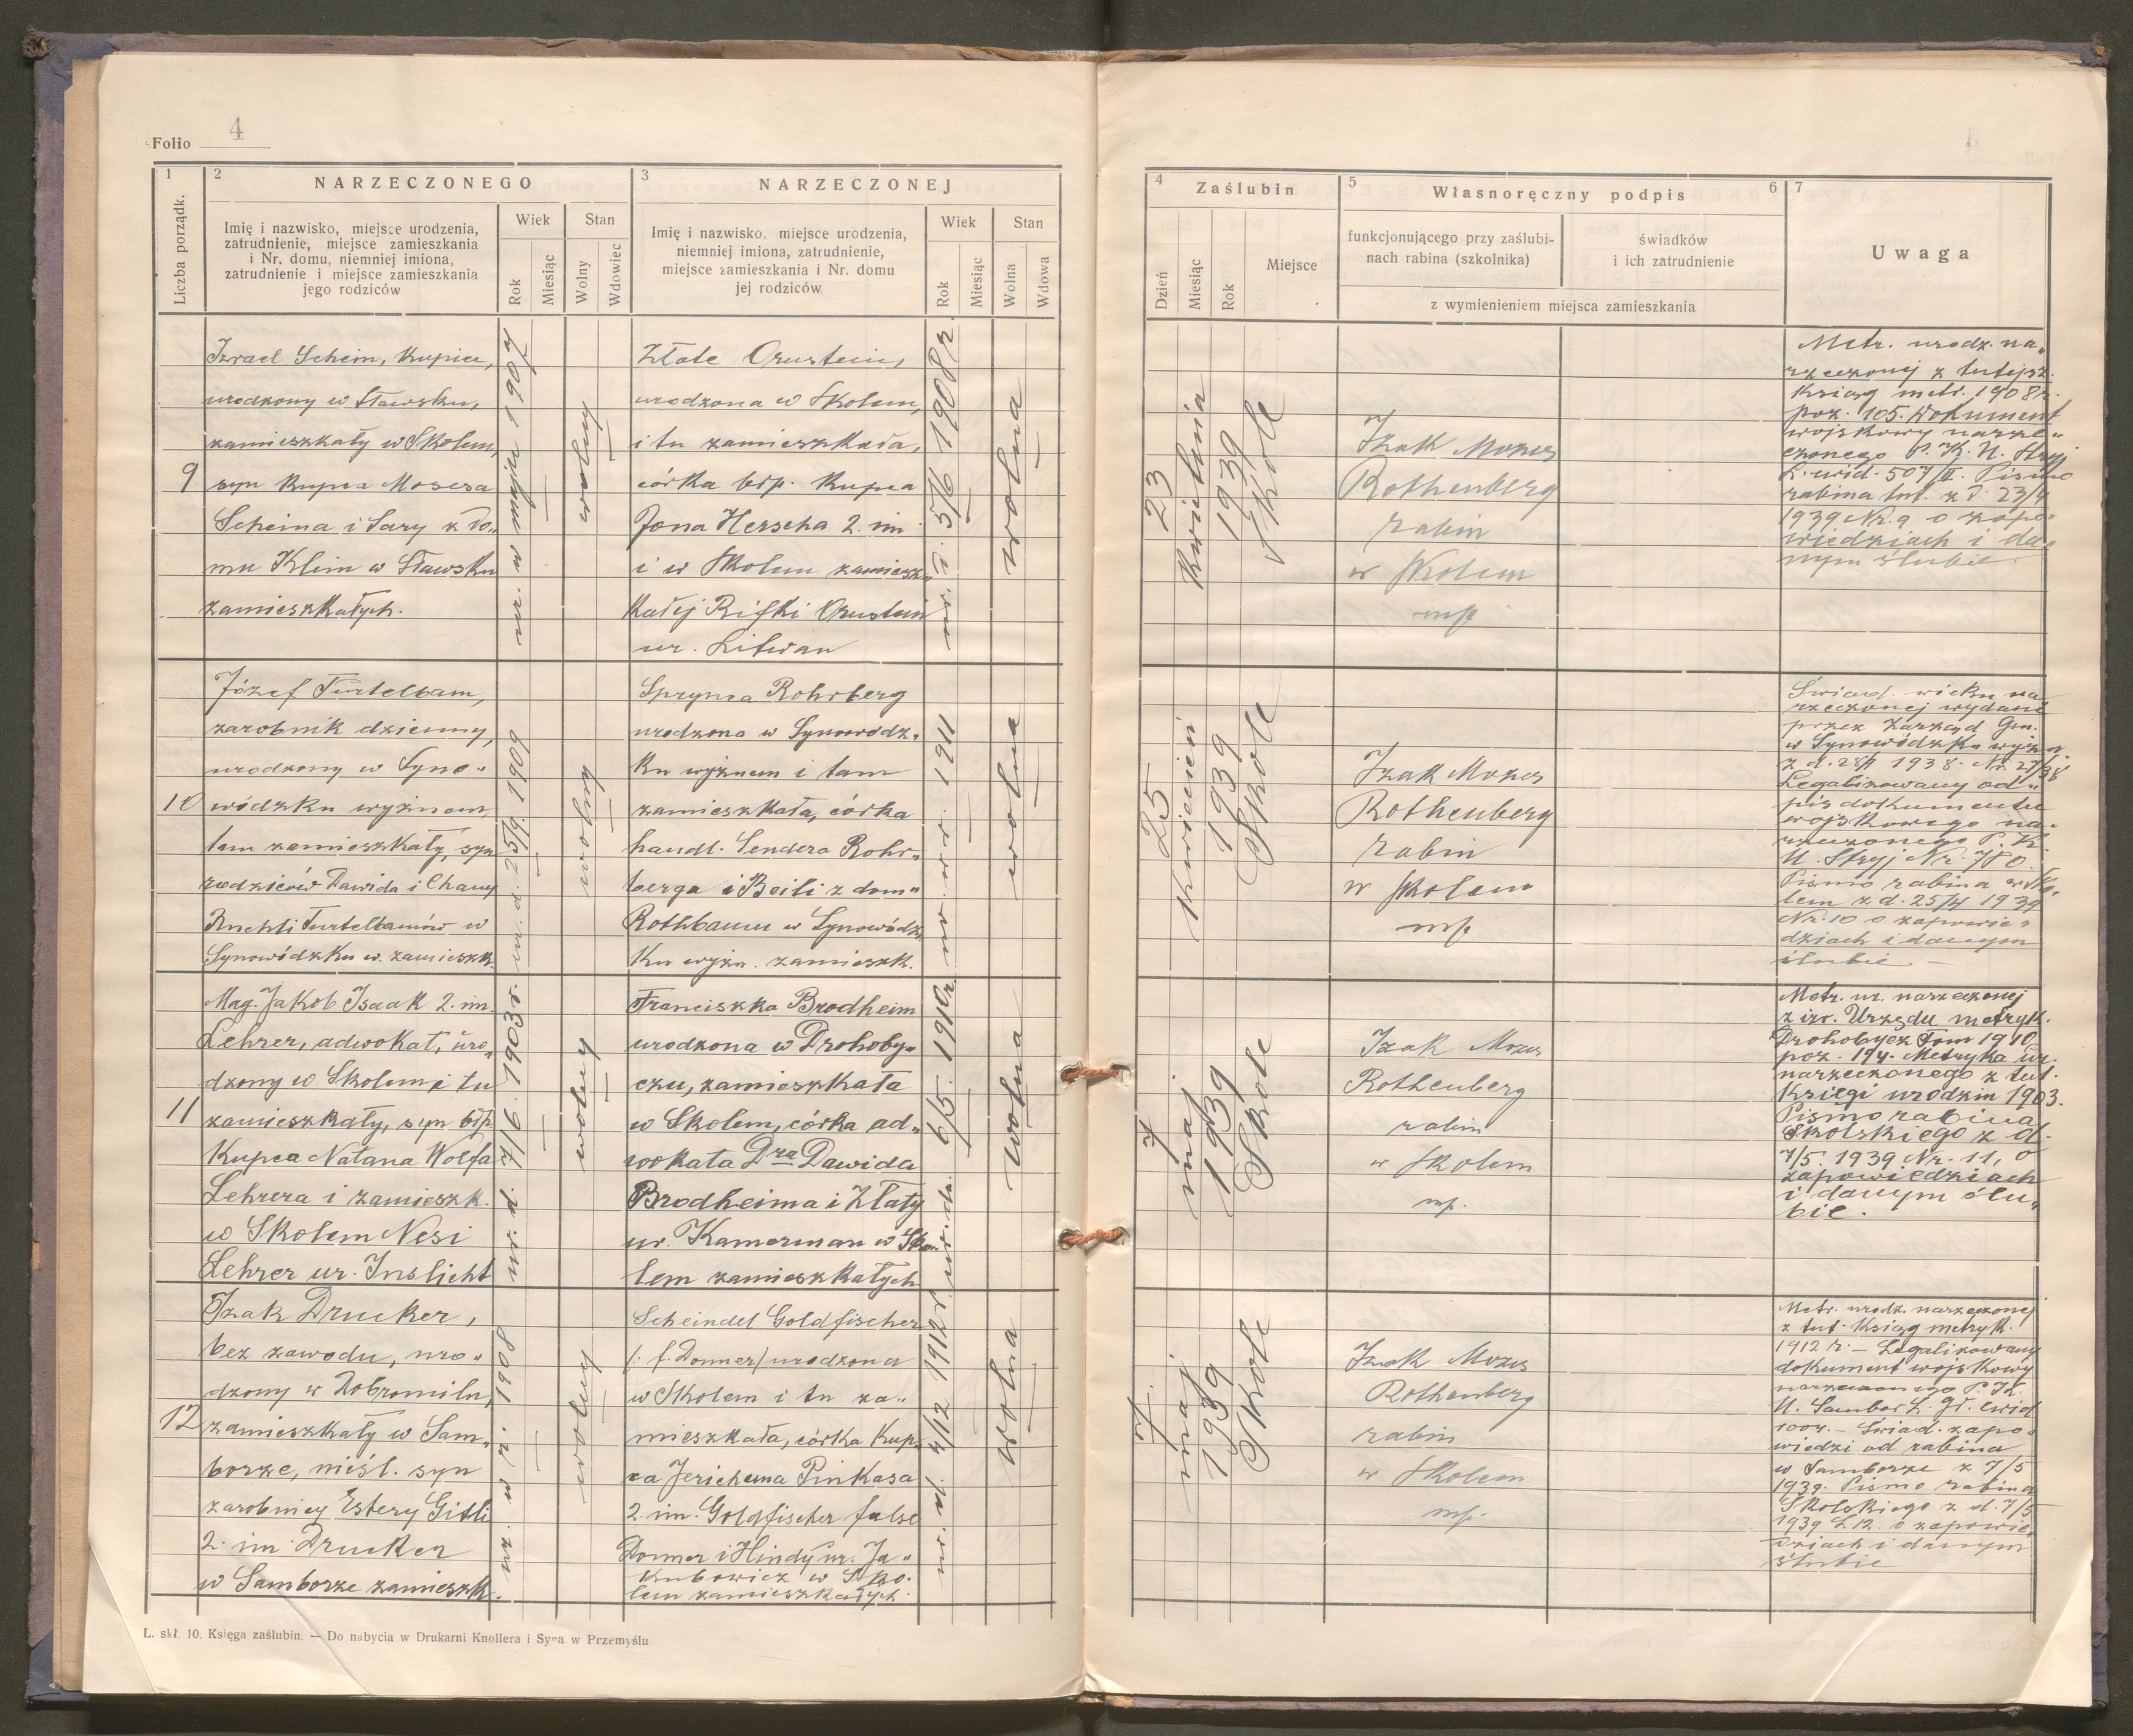 Folio 4
1
2
NARZECZONEGO
3
NARZECZONEJ
Liczba porządk.
Imię i nazwisko, miejsce urodzenia,
zatrudnienie, miejsce zamieszkania
i Nr. domu, niemniej imiona,
zatrudnienie i miejsce zamieszkania
jego rodziców
Wiek
Stan
Rok
Miesiąc
Wolny
Wdowiec
Imię i nazwisko, miejsce urodzenia,
niemniej imiona, zatrudnienie,
miejsce zamieszkania i Nr. domu
jej rodziców
Wiek
Stan
Rok
Miesiąc
Wolna
Wdowa
9
Izrael Schein, kupiec,
urodzony w Sławsku,
zamieszkały w Skolem,
syn kupca Mosesa
Scheina i Sary z do„
mu Klim w Sławsku
zamieszkałych.
ur. w maju 1907
wolny
Złate Orustein,
urodzona w Skolem,
i tu zamieszkała,
córka błp. kupca
Jona Herscha 2. im
i w Skolem zamiesz„
kałej Rifki Orustein
ur. Litwan
ur. d. 5/6 1908 r.
wolna
10
Józef Turteltam,
zarobnik dzienny,
urodzony w Syno„
wódzku wyżnem,
tam zamieszkały, syn
rodziców Dawida i Chany
Ruchli Turteltamów w
Synowódzku w. zamieszk.
ur. d. 25/9. 1909
wolny
Sprynca Rohrberg
urodzona w Synowódz„
ku wyżnem i tam
zamieszkała, córka
handl. Sendera Rohr„
berga i Beili z dom„
Rothbaum w Synowódz„
ku wyżn. zamieszk.
ur. w r. 1911
wolna
11
Mag. Jakob Isaak 2. im.
Lehrer, adwokat, uro„
dzony w Skolem i tu
zamieszkały, syn błp.
kupca Natana Wolfa
Lehrera i zamieszk.
w Skolem Nesi
Lehrer ur. Inslicht
ur. d. 7/6. 1903 r.
wolny
Franciszka Brodheim
urodzona w Drohoby„
czu, zamieszkała
w Skolem, córka ad„
wokata Dra Dawida
Brodheima i Złaty
ur. Kamerman w Sko„
lem zamieszkałych
ur. dn. 6/5. 1910 r.
wolna
12
Izak Drucker,
bez zawodu, uro„
dzony w Dobromilu,
zamieszkały w Sam„
borze, nieśl. syn
zarobnicy Estery Gitli
2. im Drucker
w Samborze zamieszk.
ur. w r. 1908
wolny
Scheindel Goldfischer
/: f. Donner/ urodzona
w Skolem i tu za„
mieszkała, córka kup„
ca Jerichema Pinkasa
2. im. Goldfischer false
Donner i Hindy ur. Ja„
kubowicz w Sko„
lem zamieszkałych.
ur. d. 4/12 1912 r.
wolna
L. skł. 10. Księga zaślubin. — Do nabycia w Drukarni Knollera i Syna w Przemyślu
4
Zaślubin
5
Własnoręczny podpis
6
7
Dzień
Miesiąc
Rok
Miejsce
funkcjonującego przy zaślubi-
nach rabina (szkolnika)
świadków
i ich zatrudnienie
z wymienieniem miejsca zamieszkania
Uwaga
23
kwietnia
1939
Skole
Izak Mozes
Rothenberg
rabin
w Skolem
mp
Metr. urodz. na„
rzeczonej z tutejsz.
ksiąg metr. 1908 r.
poz. 105. Dokument
wojskowy narze„
czonego P. K. U. Stryj
L. wid. 507/II. Pismo
rabina tut. z d. 23/4
1939 Nr. 9 o zapo„
wiedziach i da„
nym ślubie.
25
kwiecień
1939
Skole
Izak Mozes
Rothenberg
rabin
w Skolem
mp
Świad. wieku na„
rzeczonej wydane
przez Zarząd Gm.
w Synowódzku wyżn.
Nr. 27/38
Legalizowany od„
pis dokumentu
wojskowego na„
rzeczonego P. K.
U. Stryj Nr. 780
Pismo rabina w Sko„
lem z d. 25/4 1939
Nr. 10 o zapowie„
dziach i danym
ślubie. —
7
maj
1939
Skole
Izak Mozes
Rothenberg
rabin
w Skolem
mp.
Metr. ur. narzeczonej
z izr. Urzędu metryk.
Drohobycz Tom 1910
poz. 194. Metryka ur.
narzeczonego z tut.
księgi urodzin 1903.
Pismo rabina
Skolskiego z d.
7/5 1939 Nr. 11, o
zapowiedziach
i danym ślu„
bie.
7
maj
1939
Skole
Izak Mozes
Rothenberg
rabin
w Skolem
mp.
Metr. urodz. narzeczonej
z tut. ksiąg metryk.
1912 r. — Legalizowany
dokument wojskowy
narzeczonego P. K.
U. Sambor L. gł. ewid
1004. — Świad. zapo„
wiedzi od rabina
w Samborze z 7/5
1939. Pismo rabina
Skolskiego z d. 7/5
1939 L 12. o zapowie„
dziach i danym
ślubie